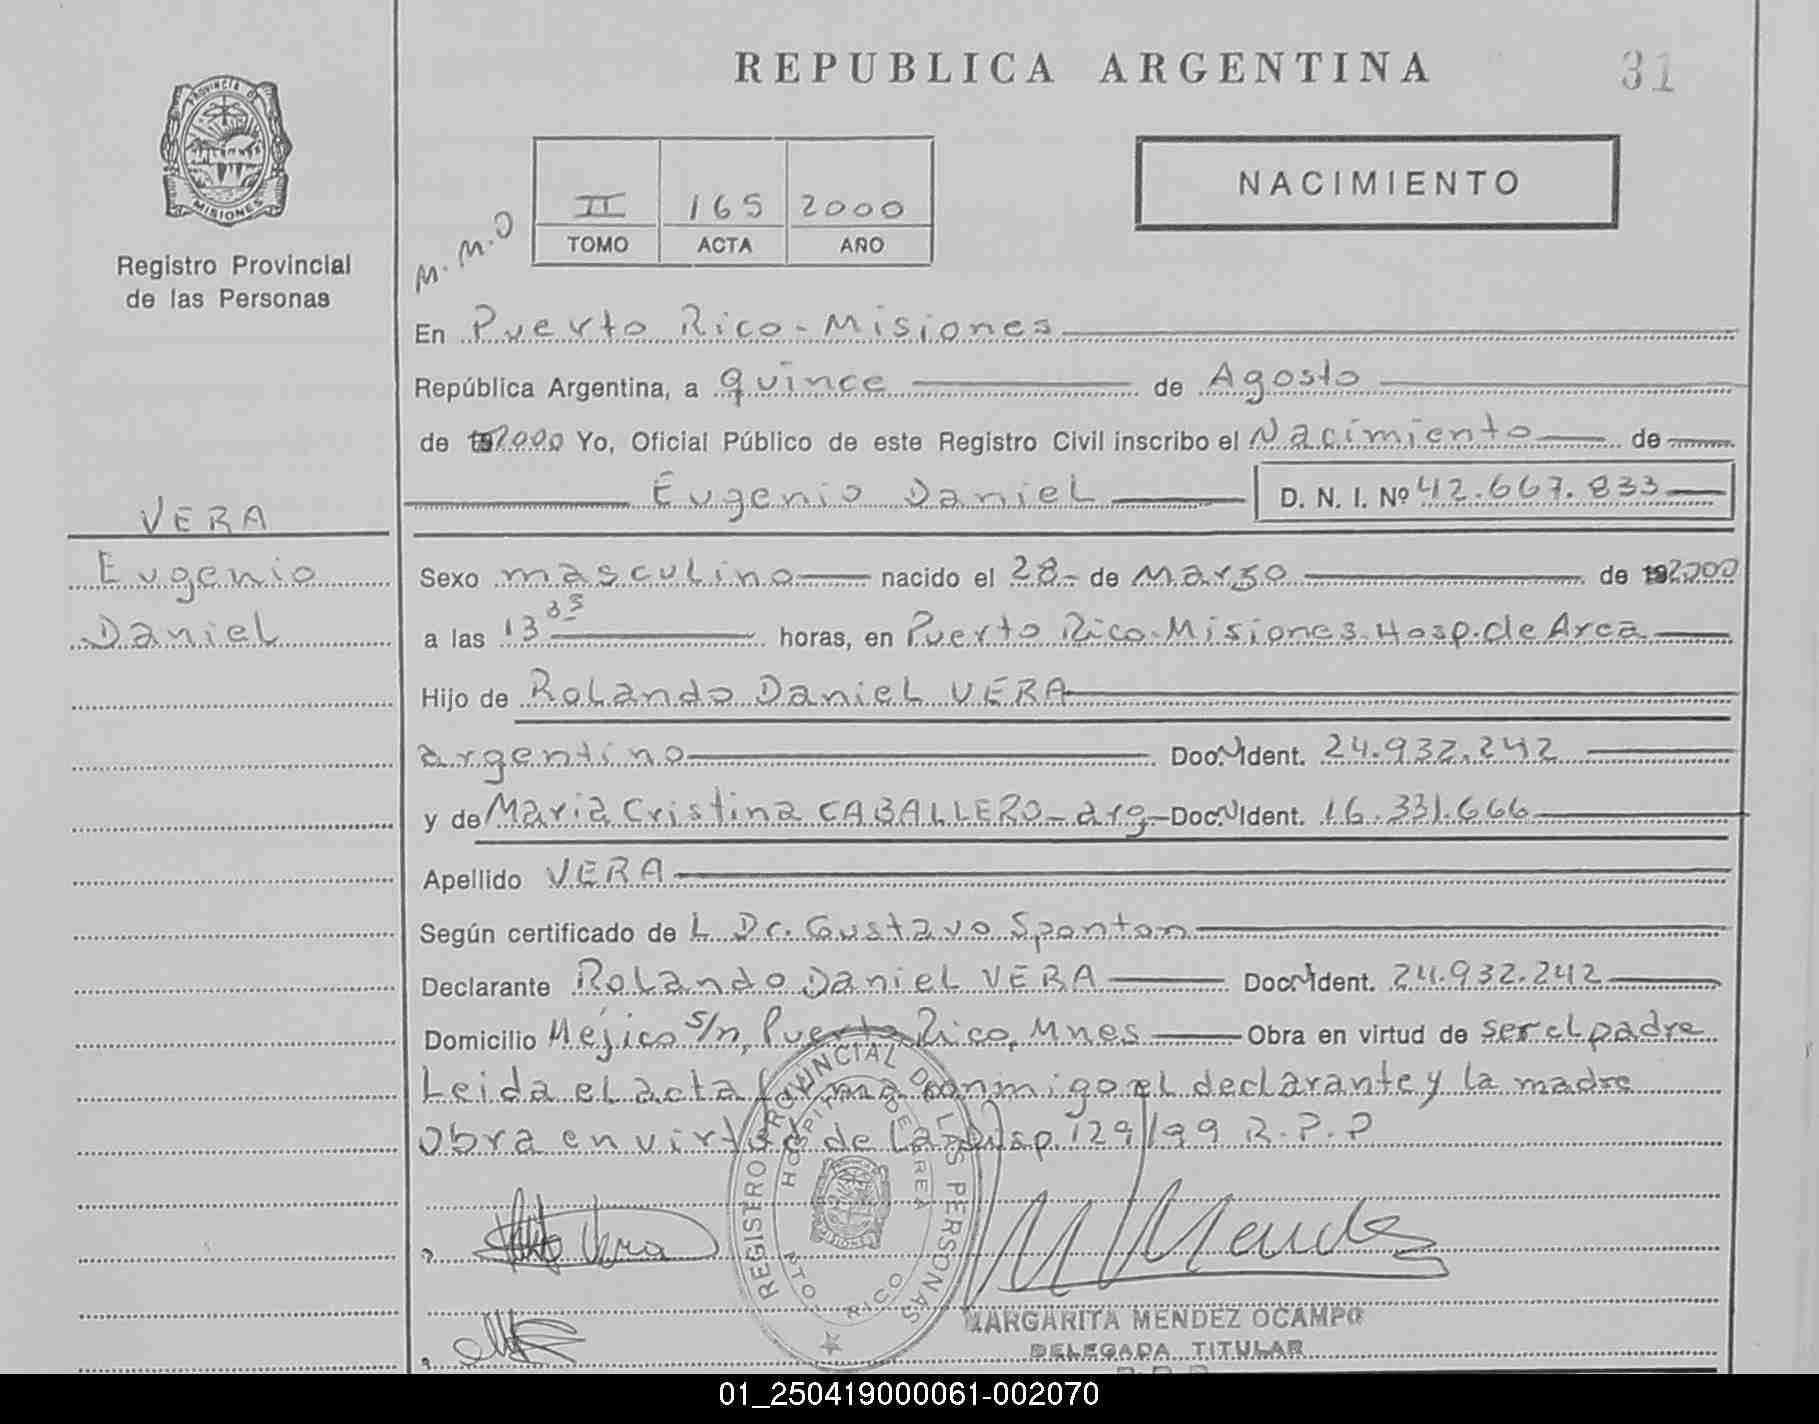 REPUBLICA ARGENTINA
31
PROVINCIA DE
MISIONES
Registro Provincial
de las Personas
M.M.O
II 165 2000
TOMO ACTA AÑO
NACIMIENTO
En Puerto Rico - Misiones
República Argentina, a quince de Agosto
de 192000 Yo, Oficial Público de este Registro Civil inscribo el Nacimiento de
Eugenio Daniel D. N. I. Nº 42.667.833
VERA
Eugenio
Daniel
Sexo masculino nacido el 28- de Marzo de 192000
a las 13 35 horas, en Puerto Rico-Misiones-Hosp.de Area
Hijo de Rolando Daniel VERA
argentino Doc.N Ident. 24.932.242
y de Maria Cristina CABALLERO-arg- Doc.N Ident. 16.331.666
Apellido VERA
Según certificado de L Dr. Gustavo Sponton
Declarante Rolando Daniel VERA Doc.N Ident. 24.932.242
Domicilio Méjico s/n, Puerto Rico, Mnes Obra en virtud de ser el padre
Leida el acta firma conmigo el declarante y la madre
Obra en virtud de La Disp. 129/99 R.P.P
REGISTRO PROVINCIAL DE LAS PERSONAS
HOSPITAL DE AREA
PTO. RICO
MISIONES
Vera
M Mendez
MARGARITA MENDEZ OCAMPO
DELEGADA TITULAR
01_250419000061-002070